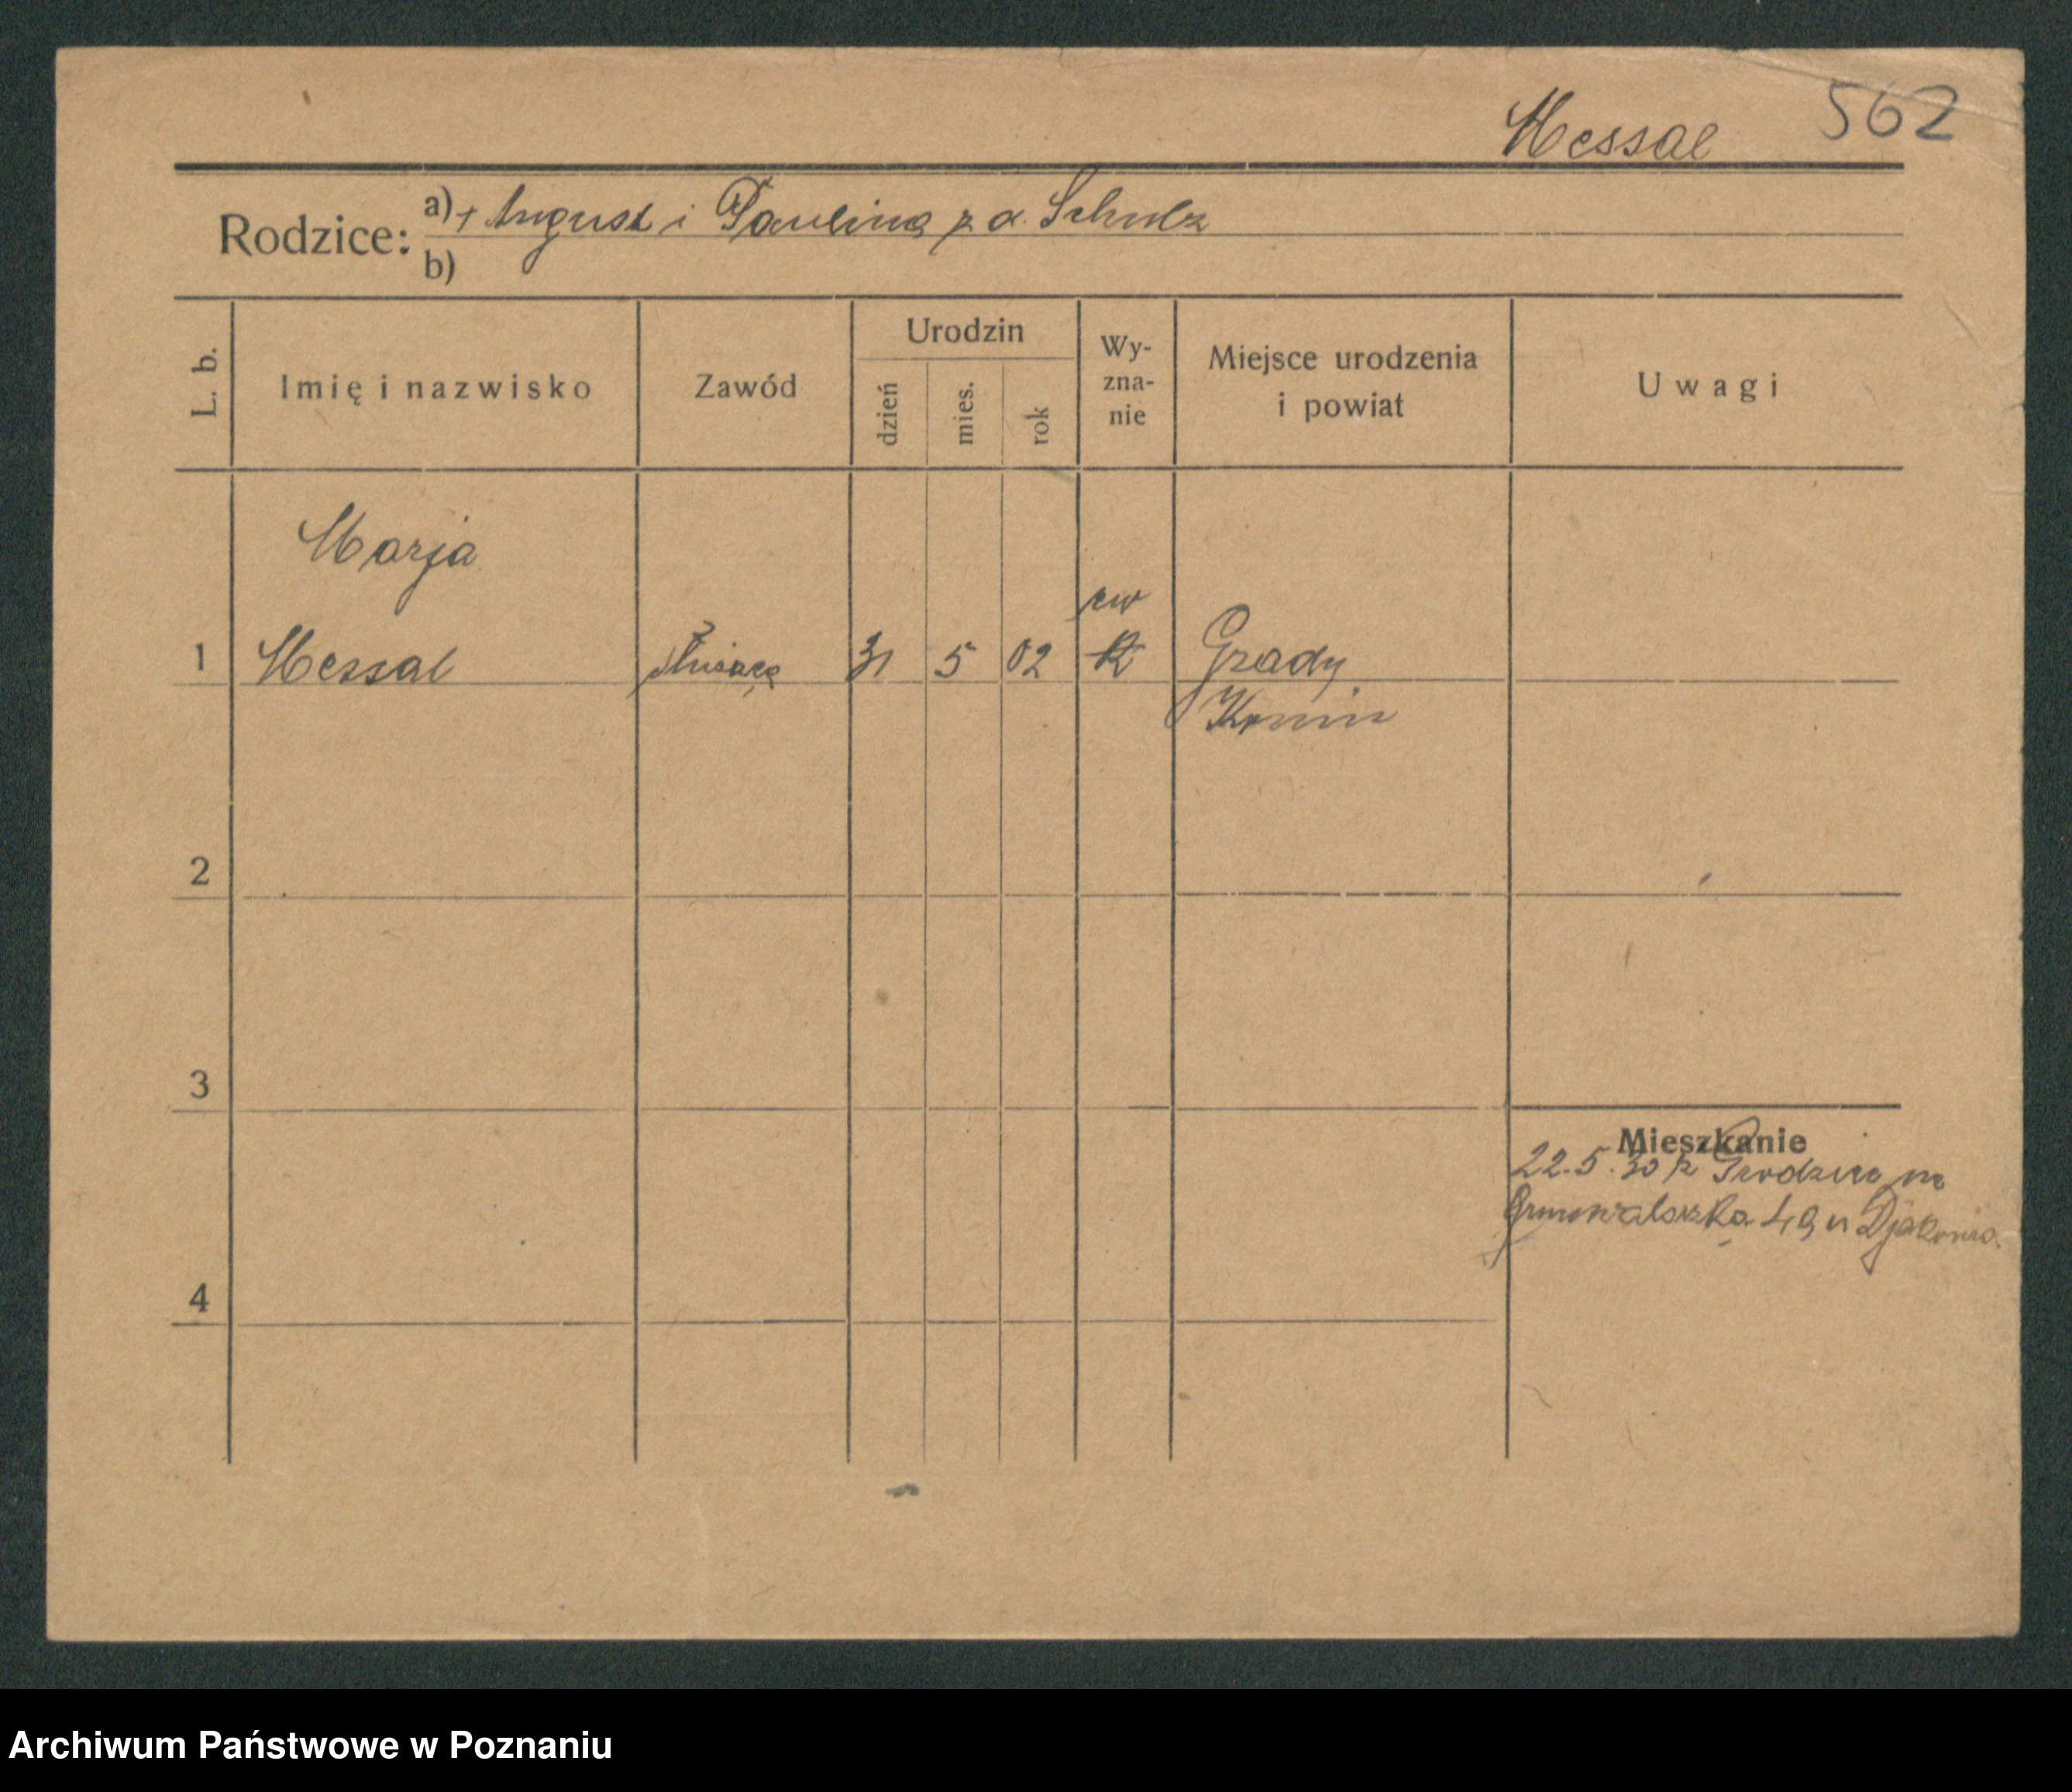 Messal 562
Rodzice: a) + August i Paulina z d. Schulz
b)
L. b.
Imię i nazwisko
Zawód
Urodzin
dzień
mies.
rok
Wy-
zna-
nie
Miejsce urodzenia
i powiat
Uwagi
Marja
ew
1 Messal służąca 31 5 02 R Grady
Konin
2
3
Mieszkanie
22.5.30 z Grodzica na
Grunwaldzka 49 u Djakonia
4
Archiwum Państwowe w Poznaniu